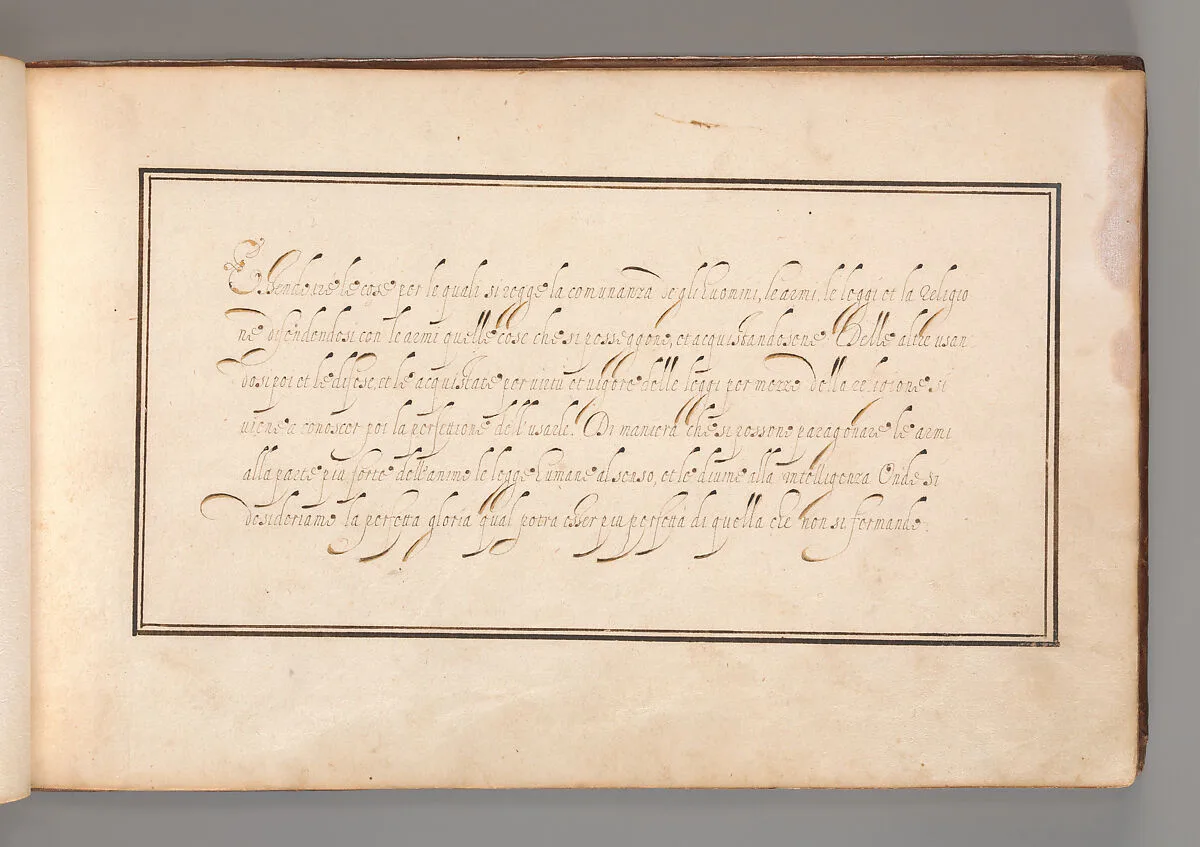 Essendo tré le cose per le quali si regge la comunanza de gli huomini, le armi, le leggi et la religio
ne difendendosi con le armi quelle cose che si posseggono, et acquistandosene Delle altre usan
dosi poi et le difese, et le acquistate per uirtu et uigore delle leggi per mezzo della religione si
uiene a conoscer poi la perfettione dell'usarle. Di maniera che si possono paragonare le armi
alla parte piu forte dell'animo le legge humane al senso, et le diuine alla intelligenza Onde si
desideriamo la perfetta gloria qual potra esser piu perfetta di quella che non si fermando